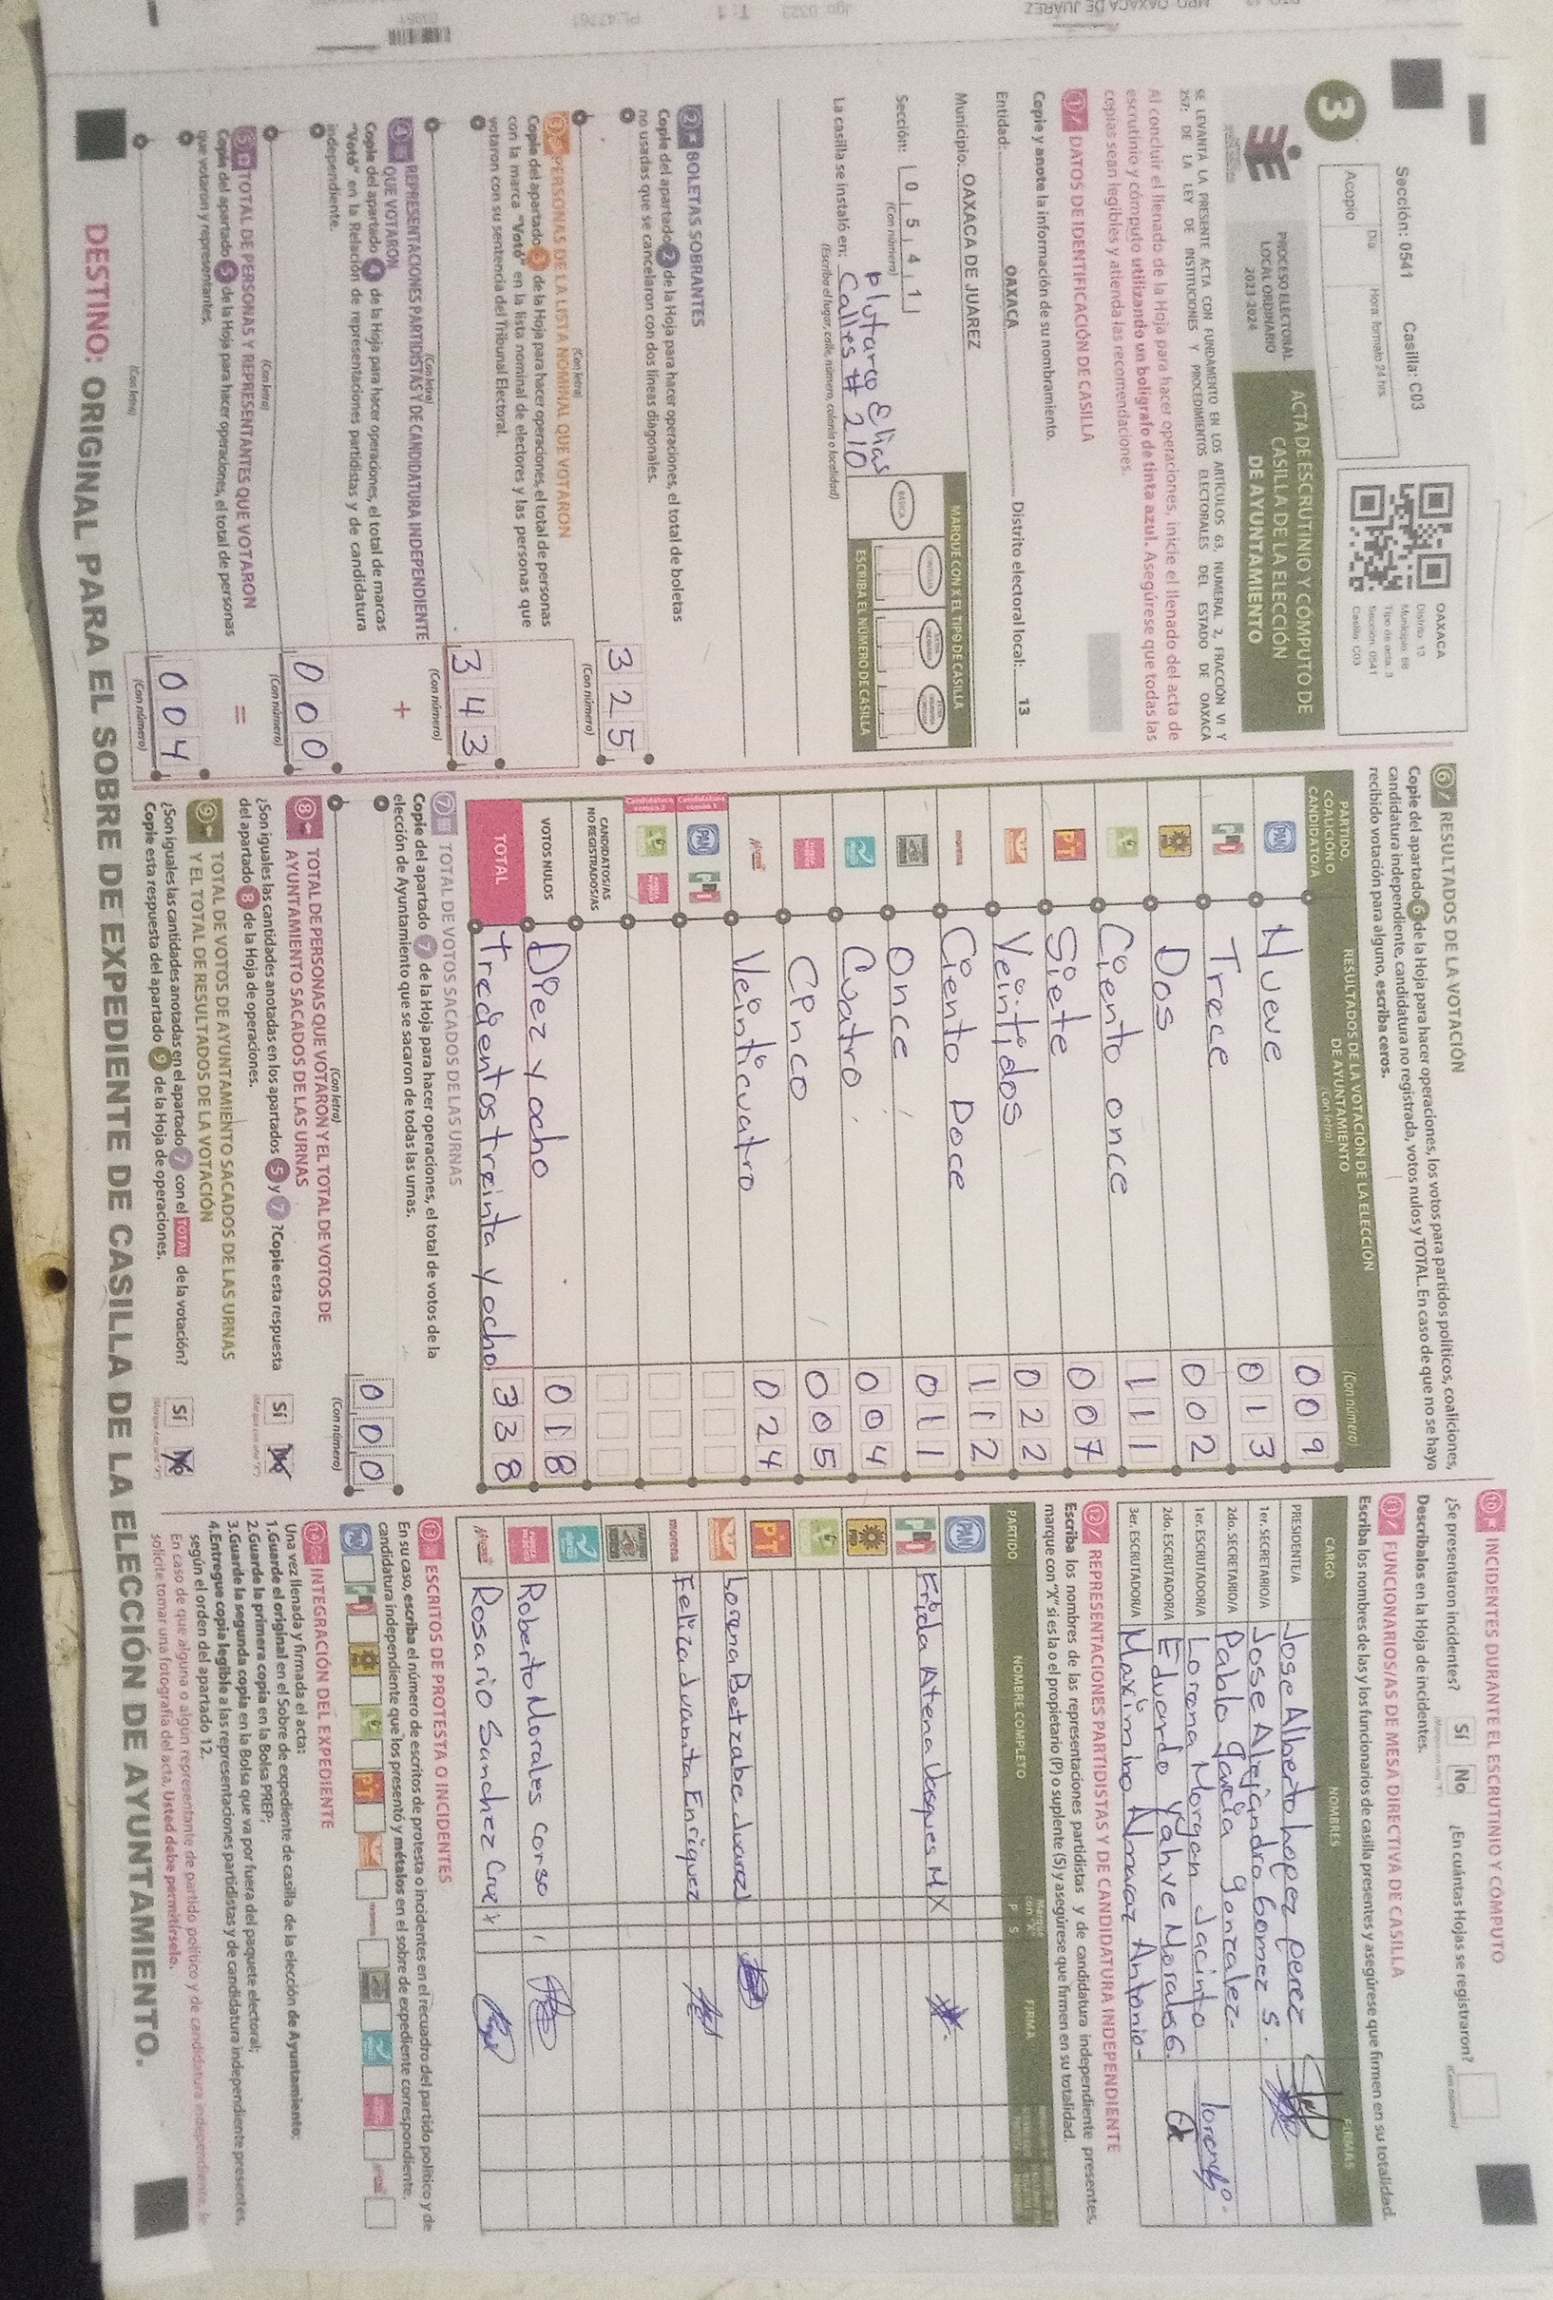 Sección: 0541 Casilla: C03
Día Hora: formato 24 hrs.
Acopio
OAXACA
Distrito: 13
Municipio: 68
Tipo de acta: 3
Sección: 0541
Casilla: C03
3
PROCESO ELECTORAL
LOCAL ORDINARIO
2023-2024
ACTA DE ESCRUTINIO Y CÓMPUTO DE
CASILLA DE LA ELECCIÓN
DE AYUNTAMIENTO
SE LEVANTA LA PRESENTE ACTA CON FUNDAMENTO EN LOS ARTÍCULOS 63, NUMERAL 2, FRACCIÓN VI Y
257; DE LA LEY DE INSTITUCIONES Y PROCEDIMIENTOS ELECTORALES DEL ESTADO DE OAXACA
Al concluir el llenado de la Hoja para hacer operaciones, inicie el llenado del acta de
escrutinio y cómputo utilizando un bolígrafo de tinta azul. Asegúrese que todas las
copias sean legibles y atienda las recomendaciones.
1 DATOS DE IDENTIFICACIÓN DE CASILLA
Copie y anote la información de su nombramiento.
Entidad: OAXACA Distrito electoral local: 13
Municipio: OAXACA DE JUAREZ
MARQUE CON X EL TIPO DE CASILLA
Sección: 0 5 4 1
(Con número)
BÁSICA
ESCRIBA EL NÚMERO DE CASILLA
La casilla se instaló en: Plutarco Elias
Calles # 210
(Escriba el lugar, calle, número, colonia o localidad)
2 BOLETAS SOBRANTES
Copie del apartado 2 de la Hoja para hacer operaciones, el total de boletas
no usadas que se cancelaron con dos líneas diagonales.
3 2 5
(Con letra) (Con número)
3 PERSONAS DE LA LISTA NOMINAL QUE VOTARON
Copie del apartado 3 de la Hoja para hacer operaciones, el total de personas
con la marca "Votó" en la lista nominal de electores y las personas que
votaron con su sentencia del Tribunal Electoral.
3 4 3
(Con letra) (Con número)
4 REPRESENTACIONES PARTIDISTAS Y DE CANDIDATURA INDEPENDIENTE
QUE VOTARON
+
Copie del apartado 4 de la Hoja para hacer operaciones, el total de marcas
"Votó" en la Relación de representaciones partidistas y de candidatura
independiente.
0 0 0
(Con letra) (Con número)
5 TOTAL DE PERSONAS Y REPRESENTANTES QUE VOTARON
=
Copie del apartado 5 de la Hoja para hacer operaciones, el total de personas
que votaron y representantes.
0 0 4
(Con letra) (Con número)
6 RESULTADOS DE LA VOTACIÓN
Copie del apartado 6 de la Hoja para hacer operaciones, los votos para partidos políticos, coaliciones,
candidatura independiente, candidatura no registrada, votos nulos y TOTAL. En caso de que no se haya
recibido votación para alguno, escriba ceros.
PARTIDO,
COALICIÓN O
CANDIDATO/A
RESULTADOS DE LA VOTACIÓN DE LA ELECCIÓN
DE AYUNTAMIENTO
(Con letra)
(Con número)
PAN Nueve 0 0 9
PRI Trece 0 1 3
PRD Dos 0 0 2
Ciento once 1 1 1
PT Siete 0 0 7
Veintidos 0 2 2
morena Ciento Doce 1 1 2
Once 0 1 1
Cuatro 0 0 4
Cinco 0 0 5
Veinticuatro 0 2 4
PAN PRI
CANDIDATOS/AS
NO REGISTRADOS/AS
VOTOS NULOS Diez y ocho 0 1 8
TOTAL trecientos treinta y ocho 3 3 8
7 TOTAL DE VOTOS SACADOS DE LAS URNAS
Copie del apartado 7 de la Hoja para hacer operaciones, el total de votos de la
elección de Ayuntamiento que se sacaron de todas las urnas.
0 0 0
(Con letra) (Con número)
8 TOTAL DE PERSONAS QUE VOTARON Y EL TOTAL DE VOTOS DE
AYUNTAMIENTO SACADOS DE LAS URNAS
¿Son iguales las cantidades anotadas en los apartados 5 y 7 ? Copie esta respuesta
del apartado 8 de la Hoja de operaciones.
Sí No
9 TOTAL DE VOTOS DE AYUNTAMIENTO SACADOS DE LAS URNAS
Y EL TOTAL DE RESULTADOS DE LA VOTACIÓN
¿Son iguales las cantidades anotadas en el apartado 7 con el TOTAL de la votación?
Copie esta respuesta del apartado 9 de la Hoja de operaciones.
Sí No
10 INCIDENTES DURANTE EL ESCRUTINIO Y CÓMPUTO
¿Se presentaron incidentes? Sí No ¿En cuántas Hojas se registraron?
(Con número)
Descríbalos en la Hoja de incidentes.
11 FUNCIONARIOS/AS DE MESA DIRECTIVA DE CASILLA
Escriba los nombres de las y los funcionarios de casilla presentes y asegúrese que firmen en su totalidad.
CARGO NOMBRES FIRMAS
PRESIDENTE/A Jose Alberto Lopez perez
1er. SECRETARIO/A Jose Alejandro Gomez S.
2do. SECRETARIO/A Pablo Garcia gonzalez
1er. ESCRUTADOR/A Lorena Morgan Jacinto
2do. ESCRUTADOR/A Eduardo Yahve Morales G.
3er. ESCRUTADOR/A Maximino Almaraz Antonio
12 REPRESENTACIONES PARTIDISTAS Y DE CANDIDATURA INDEPENDIENTE
Escriba los nombres de las representaciones partidistas y de candidatura independiente presentes,
marque con "X" si es la o el propietario (P) o suplente (S) y asegúrese que firmen en su totalidad.
PARTIDO NOMBRE COMPLETO P S FIRMA
PAN
PRI Frida Atena Vasques M X
PRD
PT
Lorena Betzabe Juarez
morena Feliza Juanita Enriquez
Roberto Morales Corso
Rosario Sanchez Cruz
13 ESCRITOS DE PROTESTA O INCIDENTES
En su caso, escriba el número de escritos de protesta o incidentes en el recuadro del partido político y de
candidatura independiente que los presentó y métalos en el sobre de expediente correspondiente.
14 INTEGRACIÓN DEL EXPEDIENTE
Una vez llenada y firmada el acta:
1.Guarde el original en el Sobre de expediente de casilla de la elección de Ayuntamiento;
2.Guarde la primera copia en la Bolsa PREP;
3.Guarde la segunda copia en la Bolsa que va por fuera del paquete electoral;
4.Entregue copia legible a las representaciones partidistas y de candidatura independiente presentes,
según el orden del apartado 12.
En caso de que alguna o algún representante de partido político y de candidatura independiente, le
solicite tomar una fotografía del acta, Usted debe permitírselo.
DESTINO: ORIGINAL PARA EL SOBRE DE EXPEDIENTE DE CASILLA DE LA ELECCIÓN DE AYUNTAMIENTO.